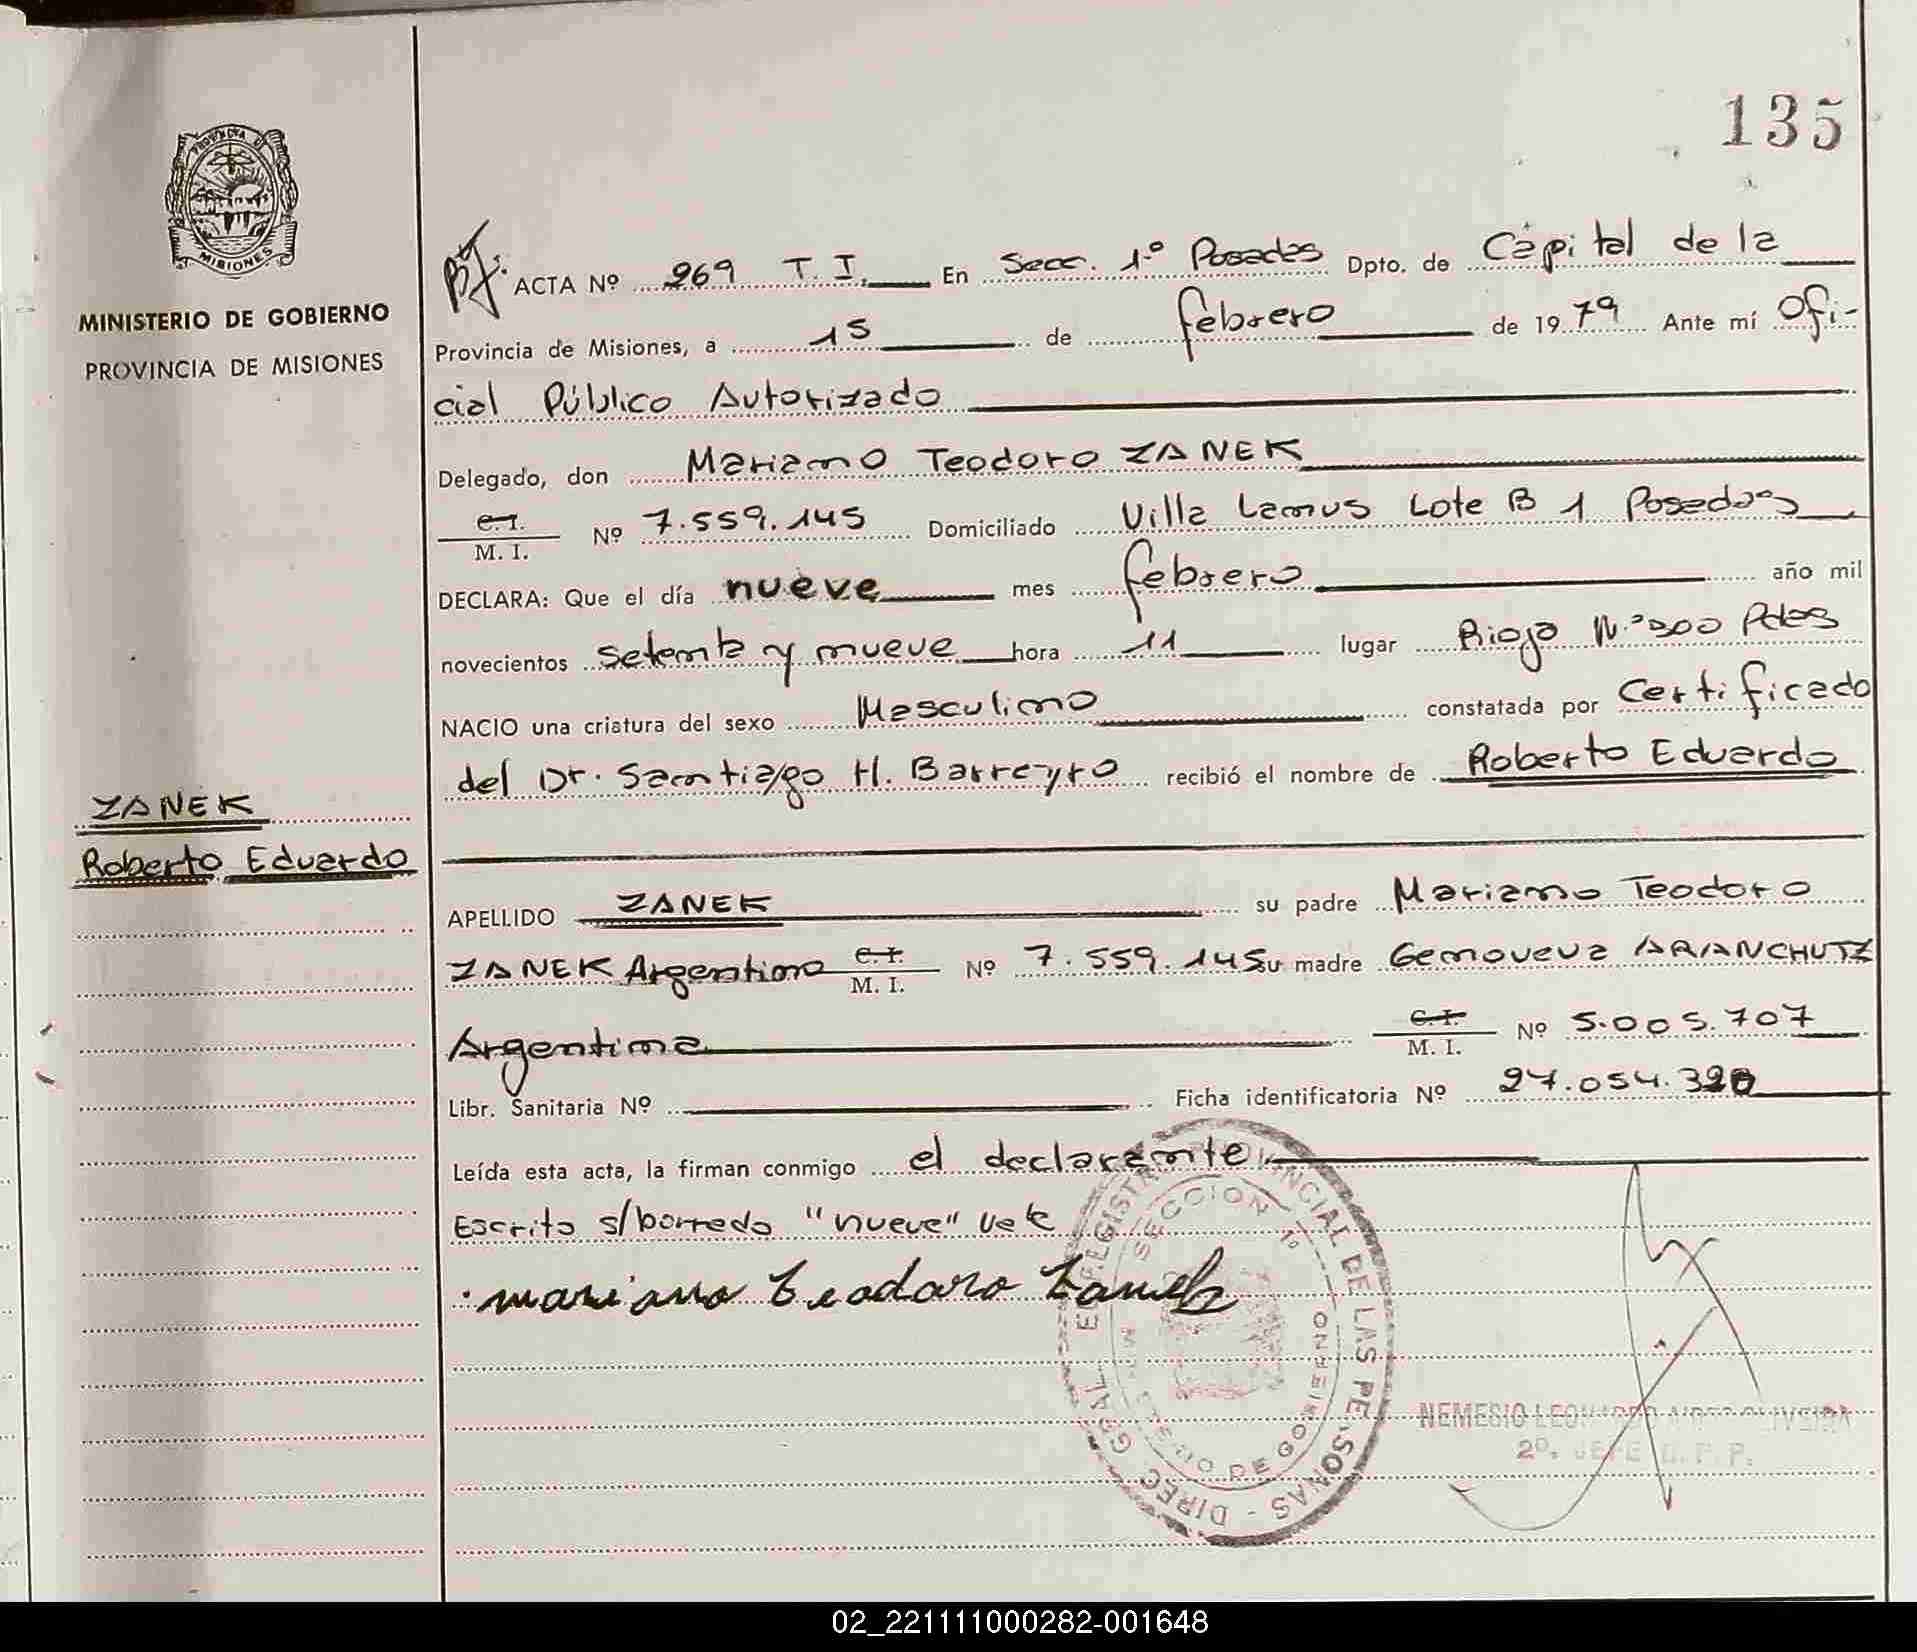 135
PROVINCIA DE
MISIONES
MINISTERIO DE GOBIERNO
PROVINCIA DE MISIONES
ACTA Nº 269 T. I. En Secc. 1º Posadas Dpto. de Capital de la
Provincia de Misiones, a 15 de febrero de 1979 Ante mí Ofi-
cial Público Autorizado
Delegado, don Mariano Teodoro ZANEK
C.I. M. I. Nº 7.559.145 Domiciliado Villa Lanus Lote B 1 Posadas
DECLARA: Que el día nueve mes febrero año mil
novecientos setenta y nueve hora 11 lugar Rioja N.º 300 Pdas
NACIO una criatura del sexo Masculino constatada por Certificado
del Dr. Santiago H. Barreyro recibió el nombre de Roberto Eduardo
ZANEK
Roberto Eduardo
APELLIDO ZANEK su padre Mariano Teodoro
ZANEK Argentino C.I. M. I. Nº 7.559.145 su madre Genoveva ARANCHUTZ
Argentina C.I. M. I. Nº 5.005.707
Libr. Sanitaria Nº Ficha identificatoria Nº 27.054.320
Leída esta acta, la firman conmigo el declarante
Escrito s/borrado "nueve" Vale
mariano teodoro Zanek
DIREC. GRAL. DEL REGISTRO PROVINCIAL DE LAS PERSONAS
SECCION 1º
MINISTERIO DE GOBIERNO
NEMESIO LEONARDO OLIVEIRA
2º. JEFE
02_221111000282-001648